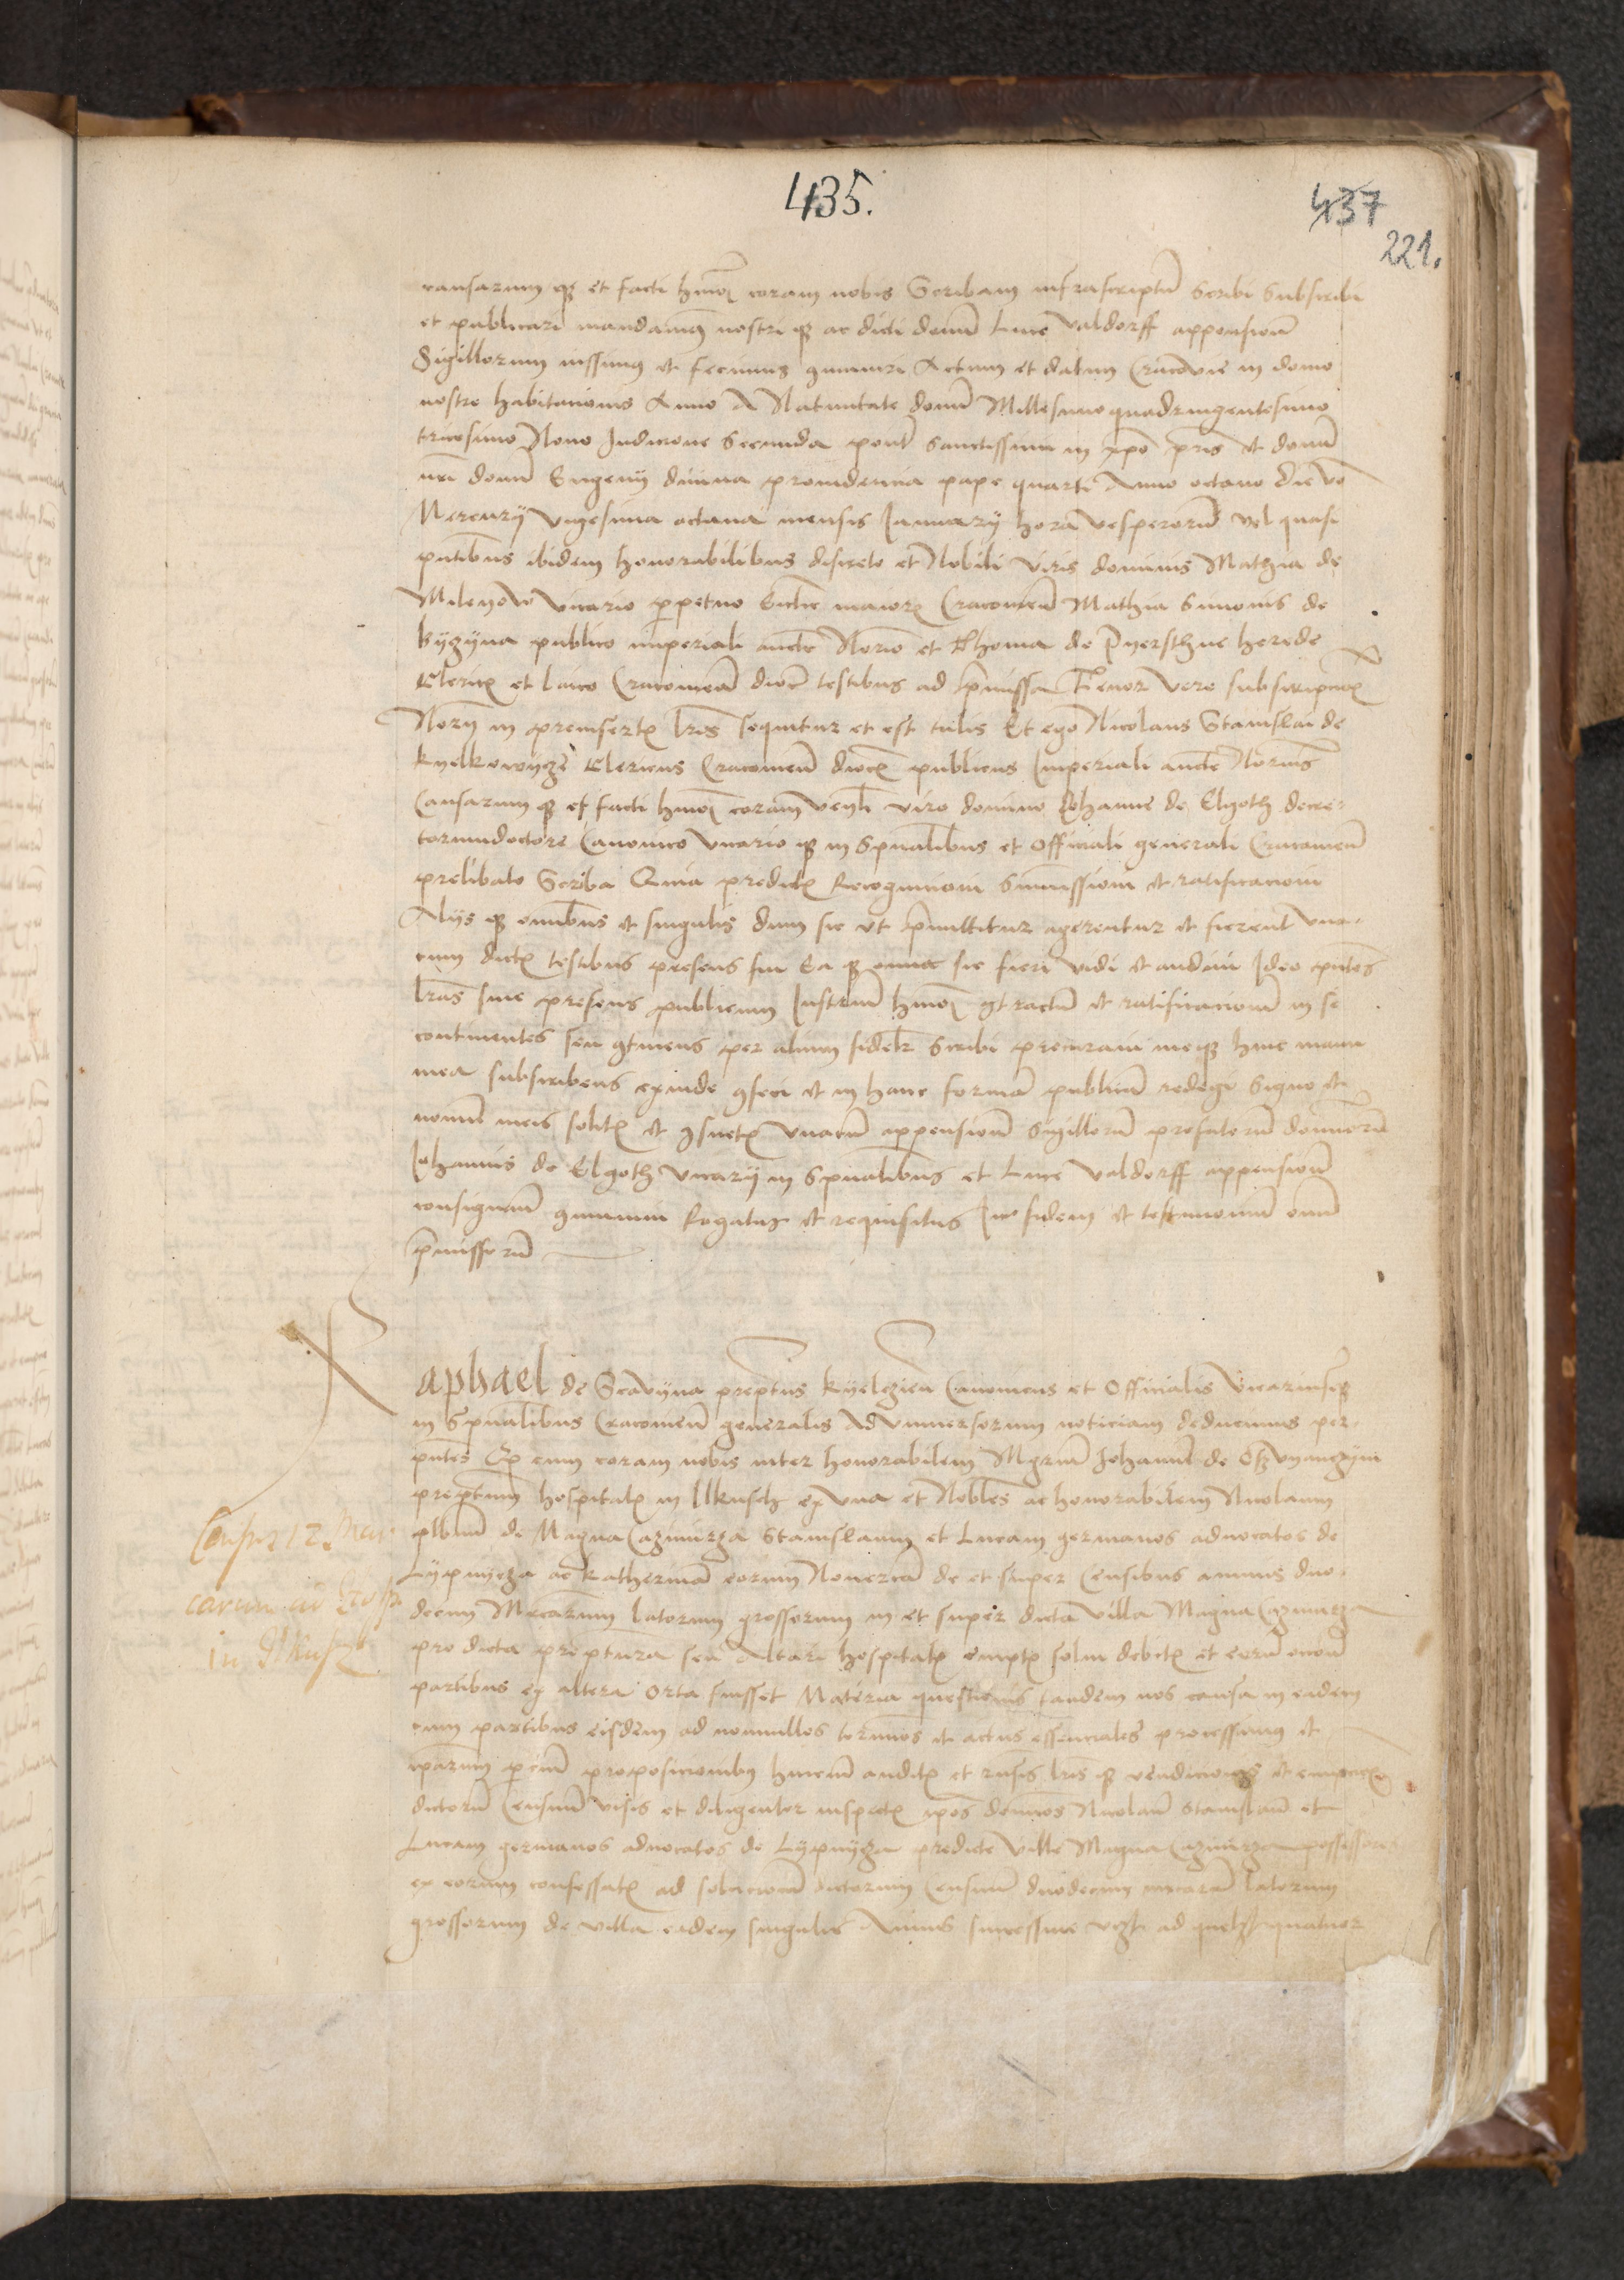 435.
437
221.
causarum q3 et facti hmoi coram nobis Scribam infrascriptu Scribi subscribi
et publicari mandamus nostri q3 ac dicti domi Luce Valdorff appensione
Sigillorum iussimus et fecimus communiri Actum et datum Cracovie in domo
nostre habitacionis Anno A Natiuitate domi Millesimo quadringentesimo
tricesimo Nono Indiccione Secunda pont Sanctissimi in xpo pris et domi
nri domi Eugeny diuina prouidencia pape quarti Anno octauo die vo
Mercury vigesima octaua mensis January hora vesperorum vel quasi
pntibus ibidem honorabilibus discreto et Nobili viris dominis Mathia de
Mileyow vicario perpetuo Ecclie maioris Cracouien Mathia Simonis de
byzyna publico imperiali aucte Norio et Thoma de Pyersthne herede
Clericis et laico Cracouien dioc testibus ad premissa Tenor vero subscripcois
Nory in preinsertis lris sequitur et est talis Et ego Nicolaus Stanislai de
Kyelkowycze Clericus Cracouien dioces publicus Imperiali aucte Norius
Causarum q3 et facti hmoi coram venli viro domino Johanne de Elgoth decre-
torumdoctore Canonico vicario q3 in Spualibus et Officiali generali Cracouien
prelibato Scriba Quia predictis Recognicioni Summissioni et ratificacioni
Alijs q3 omnibus et singulis dum sic vt premittitur agerentur et fierent vna-
cum dictis testibus presens fui Ea q3 omnia sic fieri vidi et audiui Ideo pntes
lras siue presens publicum Instrum hmoi contractum et ratificacionem in se
continentes seu continens per alium fideliter Scribi procuraui meq3 hinc manu
mea subscribens exinde confeci et in hanc formam publicam redegi Signo et
nomine meis solitis et consuetis vnacum appensione Sigillorum prefatorum dominorum
Johannis de Elgoth vicarij in Spualibus et Luce Valdorff appensione
consignaui communiui Rogatus et requisitus In fidem et testimonium omni
premissorum
Raphael de Scavyna prepositus Kyelczien Canonicus et Officialis vicariusq3
in Spualibus Cracouien generalis Ad vniuersorum noticiam deducimus per
pntes Quod cum coram nobis inter honorabilem Mgrum Johannem de Oszwyanczym
prepositum hospitalis in Ilkusch ex vna et Nobiles ac honorabilem Nicolaum
plbnum de Magna Cazimirza Stanislaum et Lucam germanos aduocatos de
Lypnycza ac Katherinam eorum Nouercam de et super Censibus annuis duo-
decim Mrcarum latorum grossorum in et super dicta villa Magna Cazimirza
pro dicta prepositura seu Altari hospitalis emptis solui debitis et eorum occone
partibus ex altera Orta fuisset Materia questionis tandem nos causa in eadem
cum partibus eisdem ad nonnullos terminos et actus essenciales processimus et
ipsarum parcium proposicionibus hincinde auditis et visis lris q3 vendicionis et empcionis
dictorum Censuum visis et diligenter inspectis ipsos dominos Nicolaum Stanislaum et
Lucam germanos aduocatos de Lypnycza predicte ville Magna Cazimirza possessores
ex eorum confessatis ad solucionem dictorum Censuum duodecim mrcarum latorum
grossorum de villa eadem singulis Annis successiue vczlt ad quelzlt quatuor
Census 12 Mar
carum ad
in Ilkusch